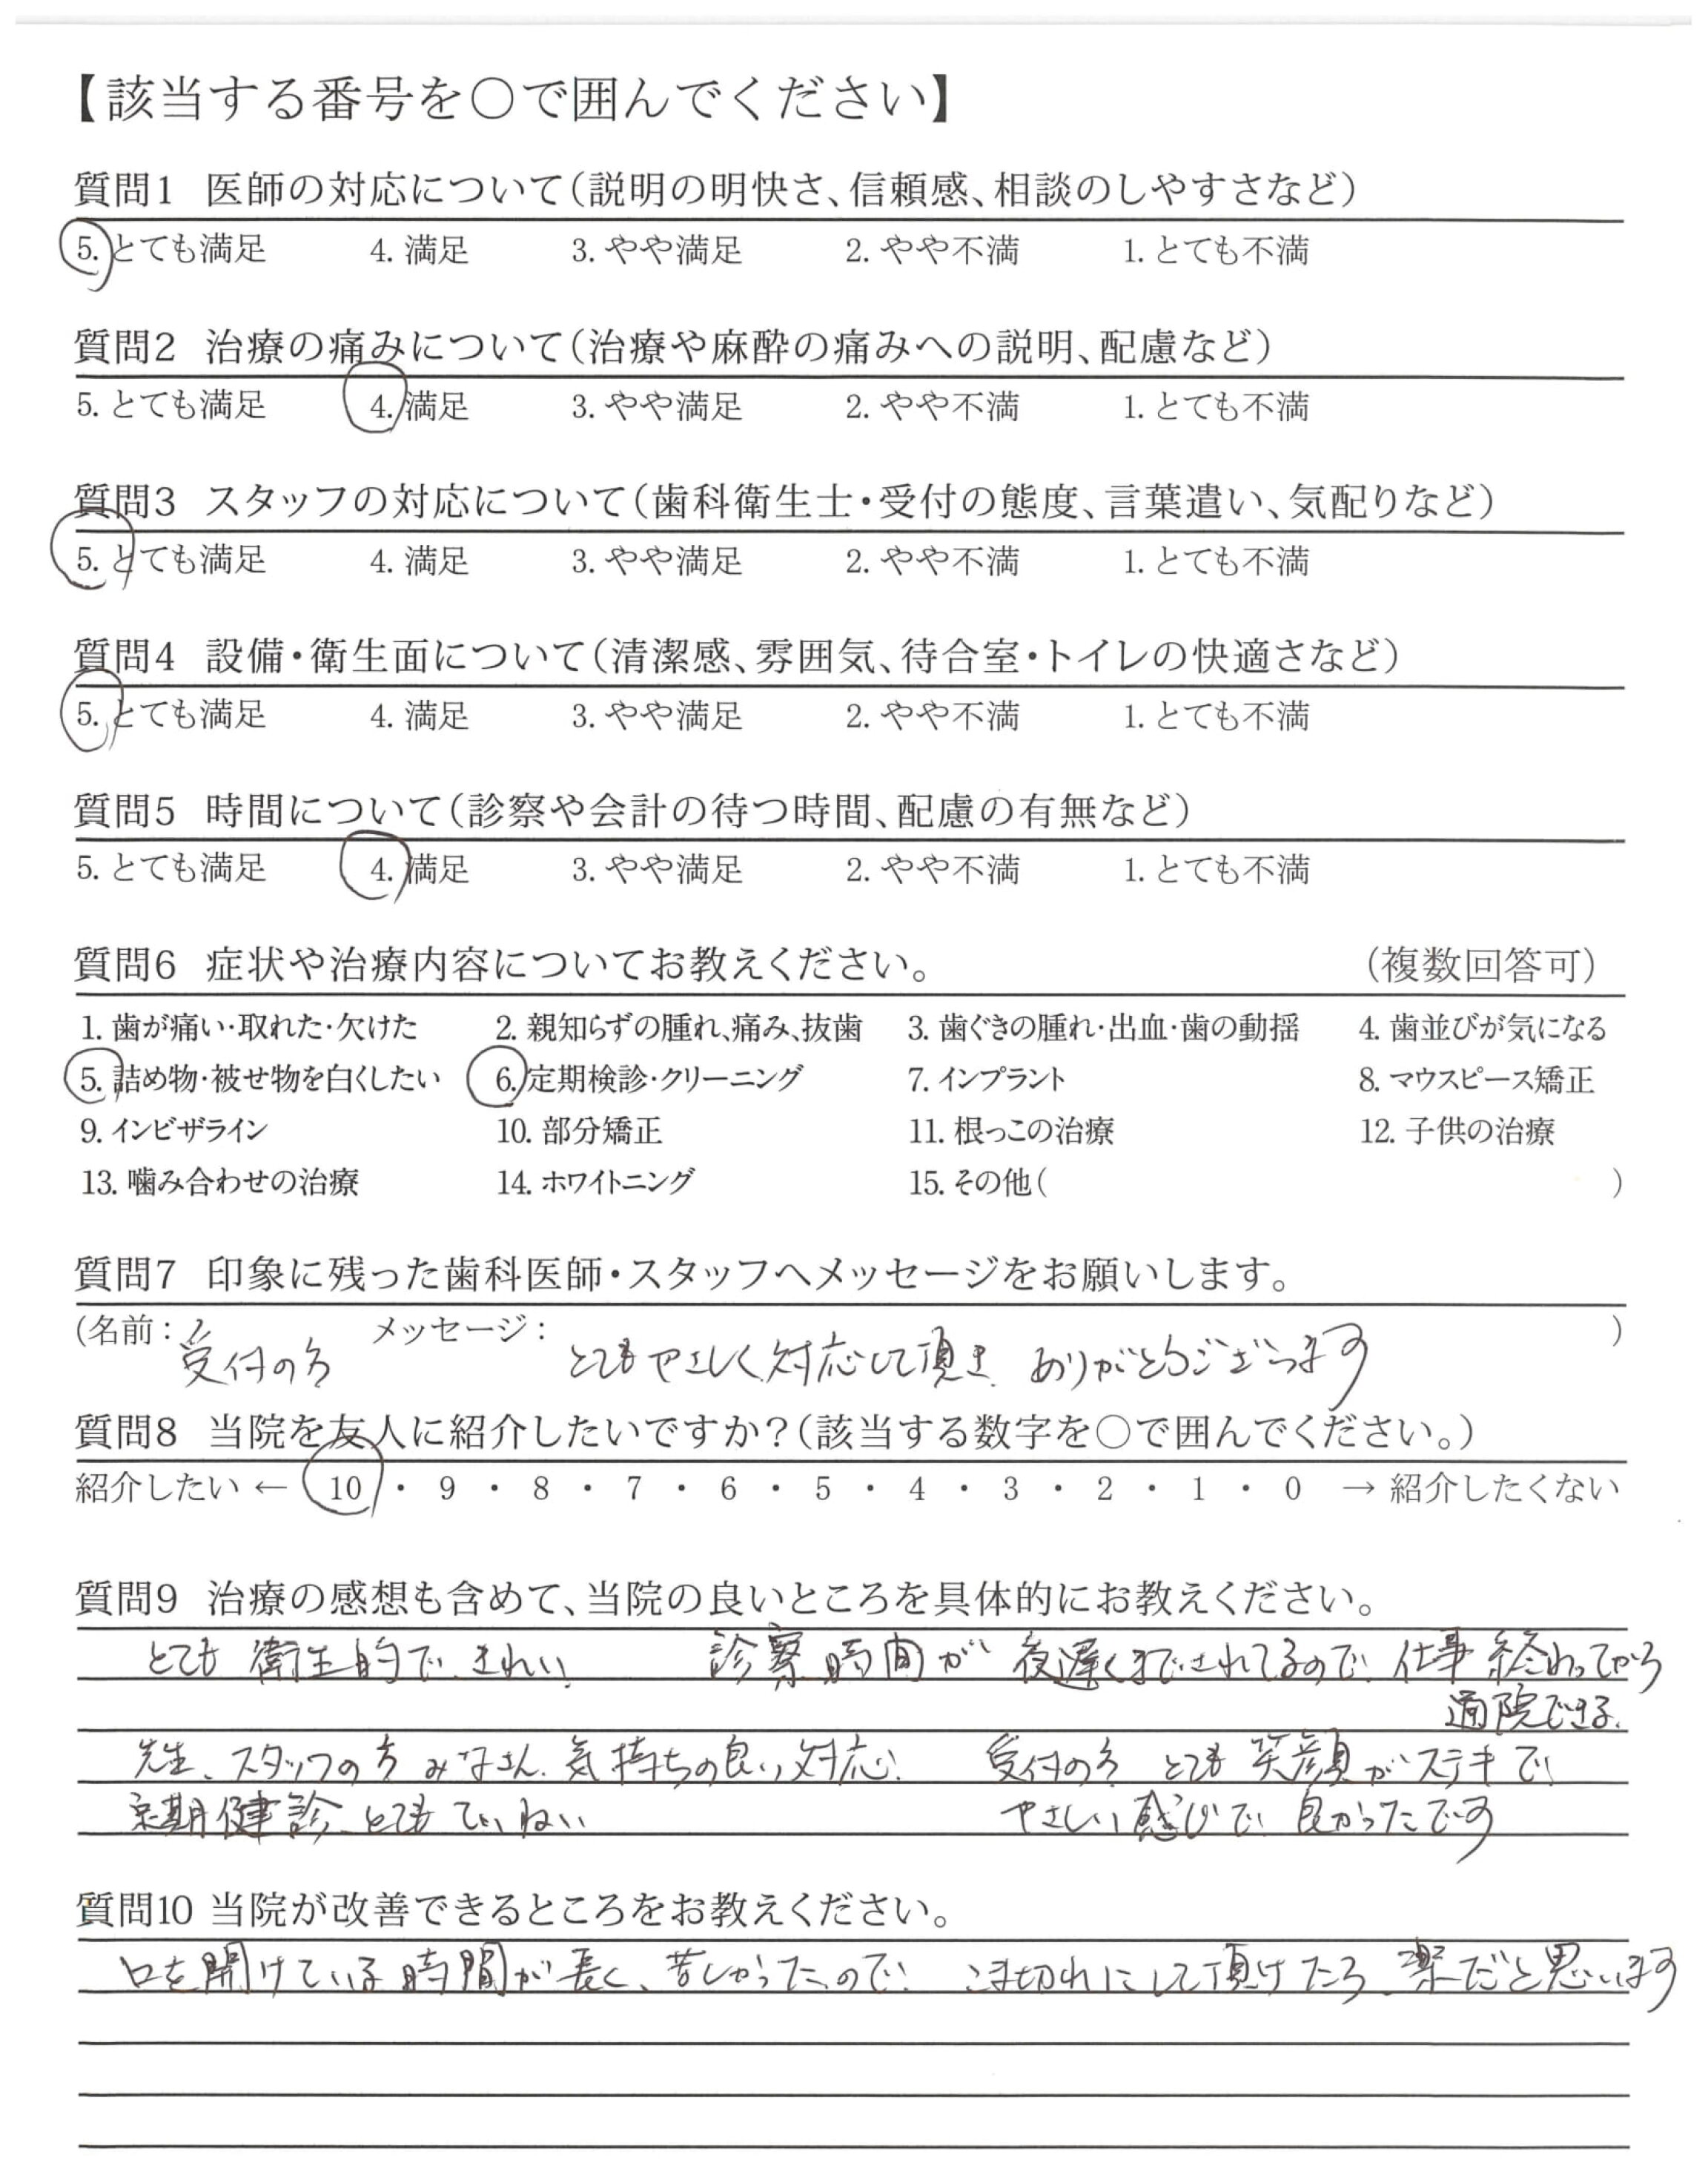 【該当する番号を○で囲んでください】
質問1 医師の対応について(説明の明快さ、信頼感、相談のしやすさなど)
5. とても満足 4. 満足 3. やや満足 2. やや不満 1. とても不満
質問2 治療の痛みについて(治療や麻酔の痛みへの説明、配慮など)
5. とても満足 4. 満足 3. やや満足 2. やや不満 1. とても不満
質問3 スタッフの対応について(歯科衛生士・受付の態度、言葉遣い、気配りなど)
5. とても満足 4. 満足 3. やや満足 2. やや不満 1. とても不満
質問4 設備・衛生面について(清潔感、雰囲気、待合室・トイレの快適さなど)
5. とても満足 4. 満足 3. やや満足 2. やや不満 1. とても不満
質問5 時間について(診察や会計の待つ時間、配慮の有無など)
5. とても満足 4. 満足 3. やや満足 2. やや不満 1. とても不満
質問6 症状や治療内容についてお教えください。 (複数回答可)
1. 歯が痛い・取れた・欠けた 2. 親知らずの腫れ、痛み、抜歯 3. 歯ぐきの腫れ・出血・歯の動揺 4. 歯並びが気になる
5. 詰め物・被せ物を白くしたい 6. 定期検診・クリーニング 7. インプラント 8. マウスピース矯正
9. インビザライン 10. 部分矯正 11. 根っこの治療 12. 子供の治療
13. 噛み合わせの治療 14. ホワイトニング 15. その他( )
質問7 印象に残った歯科医師・スタッフへメッセージをお願いします。
(名前： メッセージ： )
受付の方 とてもやさしく対応して頂き ありがとうございます
質問8 当院を友人に紹介したいですか？(該当する数字を○で囲んでください。)
紹介したい ← 10 ・ 9 ・ 8 ・ 7 ・ 6 ・ 5 ・ 4 ・ 3 ・ 2 ・ 1 ・ 0 → 紹介したくない
質問9 治療の感想も含めて、当院の良いところを具体的にお教えください。
とても 衛生的で きれい 診察時間が 夜遅くまでされてるので 仕事 終わってから
通院できる.
先生、スタッフの方 みなさん 気持ちの良い対応 受付の方 とても 笑顔がステキで
定期健診 とても ていねい やさしい感じで 良かったです
質問10 当院が改善できるところをお教えください。
口を開けている時間が長く、苦しかったので こま切れにして頂けたら 楽だと思います